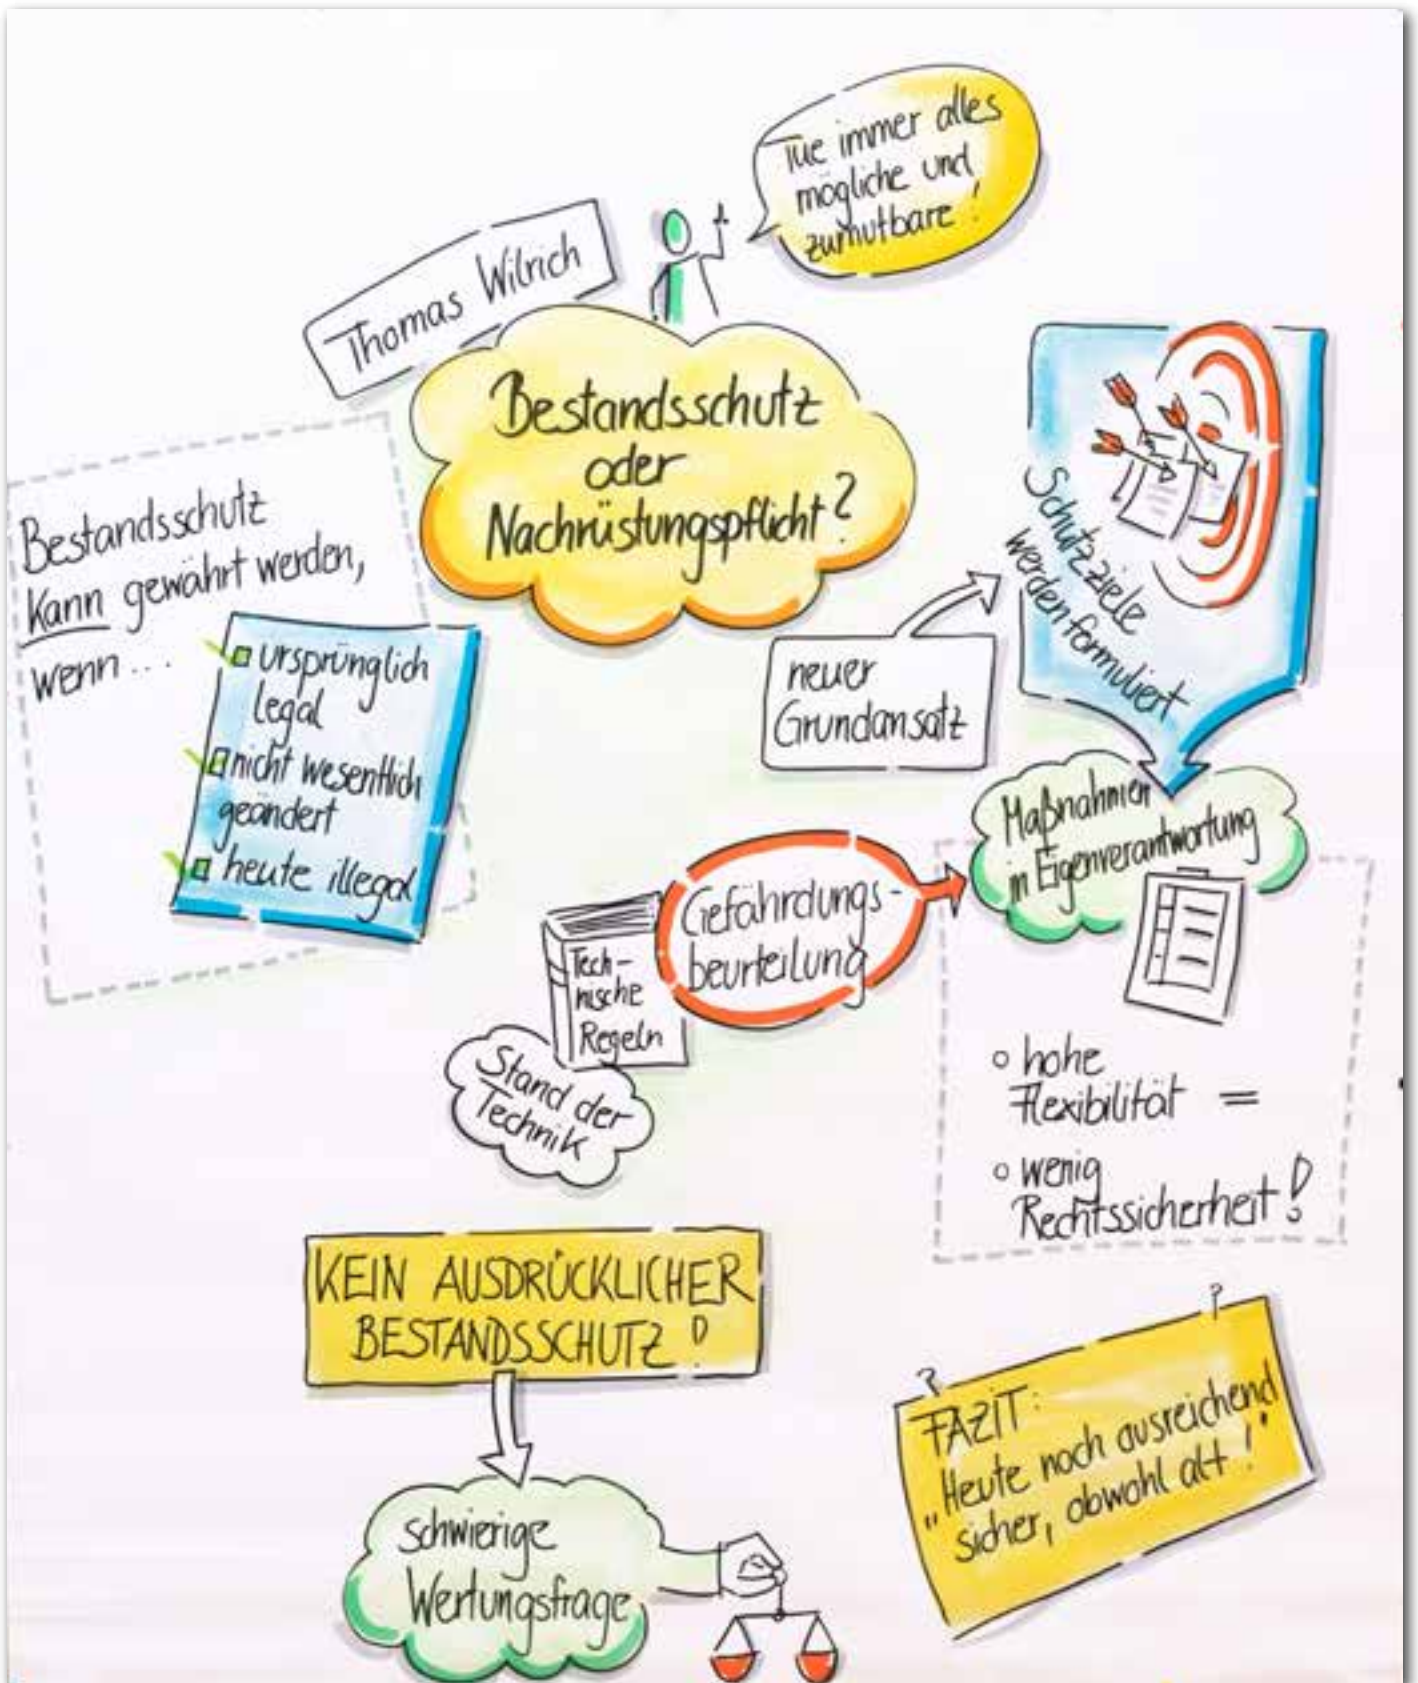 Tue immer alles
mögliche und
zumutbare!
Thomas Wilrich
Bestandsschutz
oder
Nachrüstungspflicht?
Bestandsschutz
kann gewährt werden,
wenn...
ursprünglich
legal
nicht wesentlich
geändert
heute illegal
neuer
Grundansatz
Schutzziele
werden formuliert
Maßnahmen
in Eigenverantwortung
Gefährdungs-
beurteilung
Tech-
nische
Regeln
Stand der
Technik
hohe
Flexibilität =
wenig
Rechtssicherheit!
KEIN AUSDRÜCKLICHER
BESTANDSSCHUTZ!
schwierige
Wertungsfrage
FAZIT:
"Heute noch ausreichend
sicher, obwohl alt!"